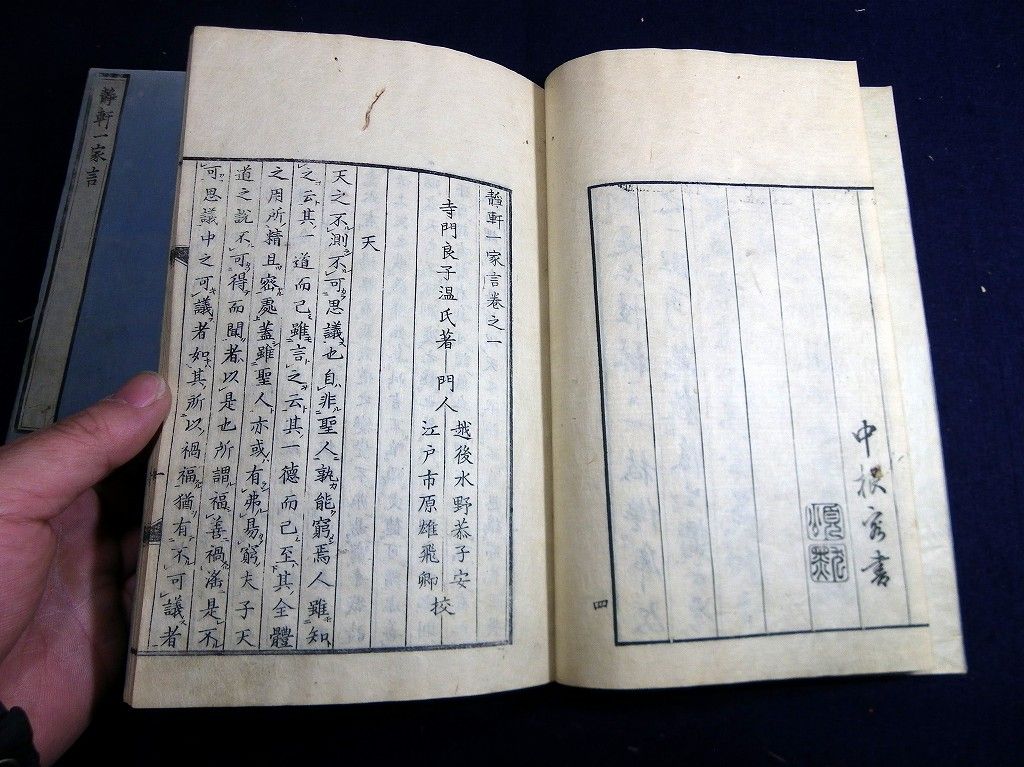 中根容書
四
靜軒一家言卷之一
寺門良子温氏著 門人 越後水野恭子安
江戸市原雄飛卿 校
天
天之不測不可思議也自非聖人孰能窮焉人雖知
之云其一道而已雖言之云其一德而已至其全體
之用所精且密處蓋雖聖人亦或有弗易窮夫子天
道之說不可得而聞者以是也所謂福善禍淫是不
可思議中之可議者如其所以禍福猶有不可議者
靜軒一家言